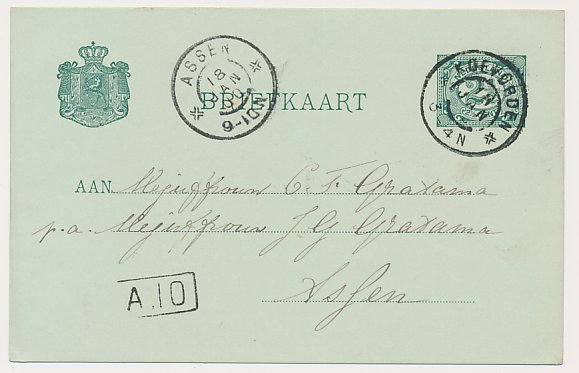 ASSEN
18 JAN
9-10N
BRIEFKAART
KOEVORDEN
JAN
3-4N
AAN Mejuffrouw C. F. Gratama
p.a. Mejuffrouw J G Gratama
Assen
A.10